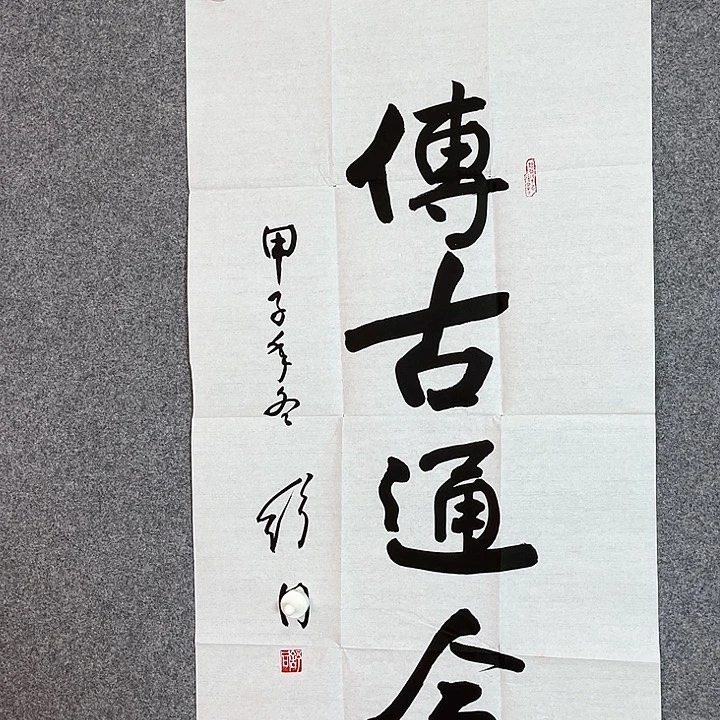 傳古通今
甲子年冬 舒同